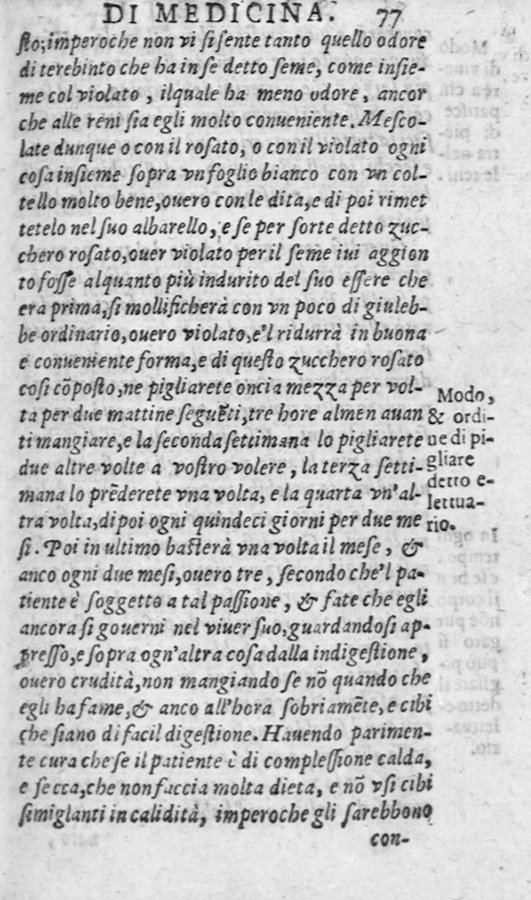 DI MEDICINA. 77
sto; imperoche non vi si sente tanto quello odore
di terebinto che ha in se detto seme, come insie-
me col violato, ilquale ha meno odore, ancor
che alle reni sia egli molto conueniente. Mesco-
late dunque o con il rosato, o con il violato ogni
cosa insieme sopra vn foglio bianco con vn col-
tello molto bene, ouero con le dita, e di poi rimet
tetelo nel suo albarello, e se per sorte detto zuc-
chero rosato, ouer violato per il seme iui aggion
to fosse alquanto più indurito del suo essere che
era prima, si mollificherà con vn poco di giuleb-
be ordinario, ouero violato, e'l ridurrà in buona
e conueniente forma, e di questo zucchero rosato
cosi cõposto, ne pigliarete oncia mezza per vol-
ta per due mattine seguẽti, tre hore almen auan
ti mangiare, e la seconda settimana lo pigliarete
due altre volte a vostro volere, la terza setti-
mana lo prẽderete vna volta, e la quarta vn'al-
tra volta, di poi ogni quindeci giorni per due me
si. Poi in ultimo basterà vna volta il mese, &
anco ogni due mesi, ouero tre, secondo che'l pa-
tiente è soggetto a tal passione, & fate che egli
ancora si gouerni nel viuer suo, guardandosi ap-
presso, e sopra ogn'altra cosa dalla indigestione,
ouero crudità, non mangiando se nõ quando che
egli ha fame, & anco all'hora sobriamẽte, e cibi
che siano di facil digestione. Hauendo parimen-
te cura che se il patiente è di complessione calda,
e secca, che non faccia molta dieta, e nõ vsi cibi
simiglanti in calidità, imperoche gli sarebbono
con-
Modo,
& ordi-
ne di pi-
gliare
detto e-
lettua-
rio.